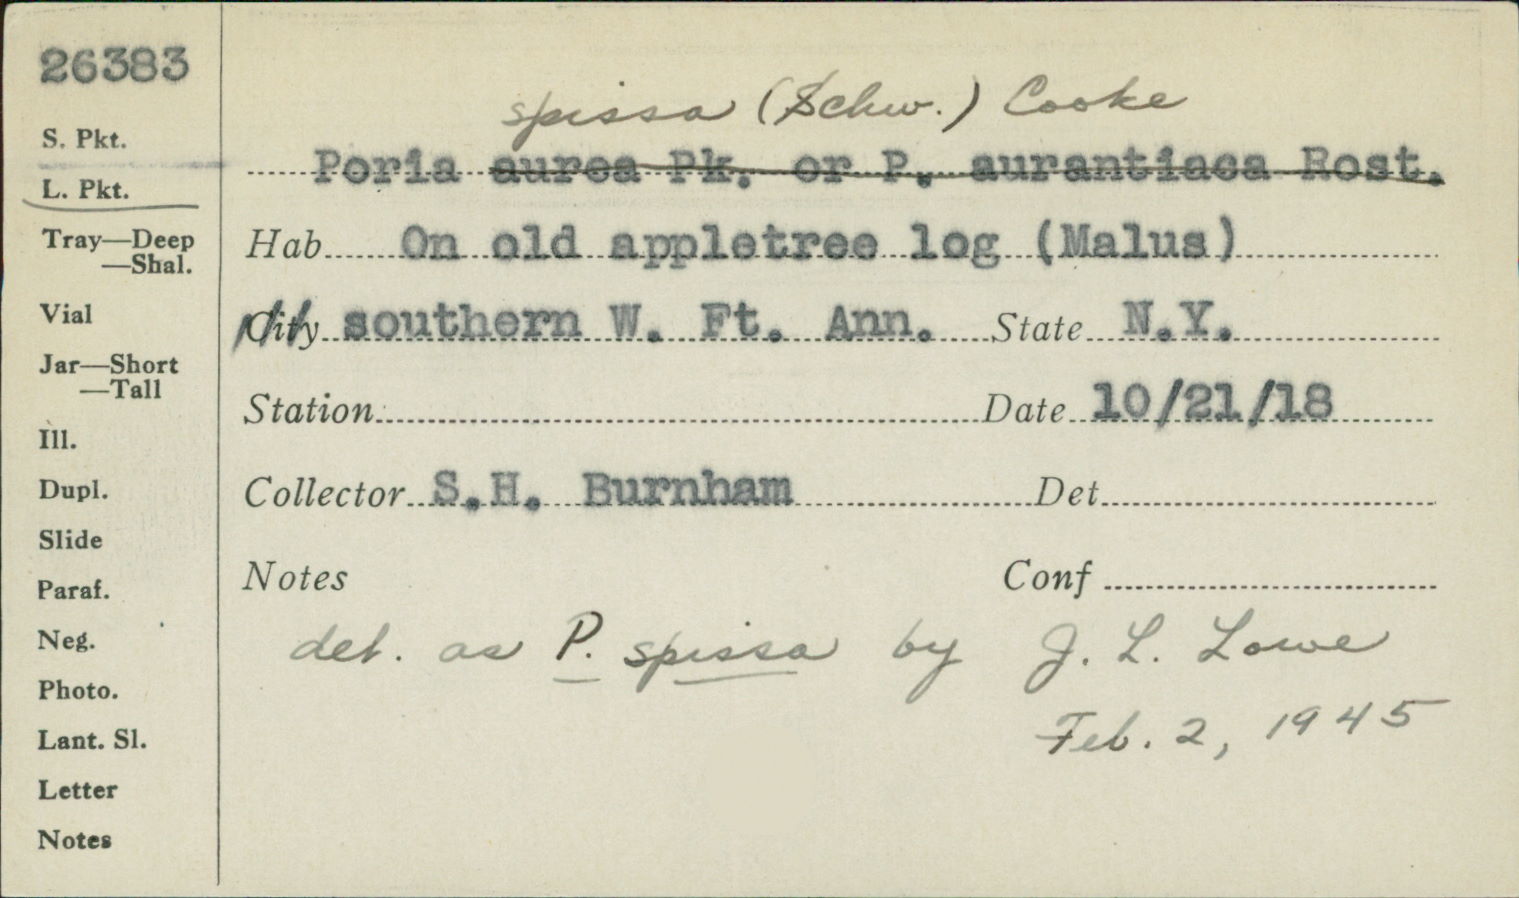 26383
S. Pkt.
L. Pkt.
Tray—Deep
—Shal.
Vial
Jar—Short
—Tall
Ill.
Dupl.
Slide
Paraf.
Neg.
Photo.
Lant. Sl.
Letter
Notes
spissa (Schw.) Cooke
Poria aurea Pk. or P. aurantiaca Rost.
Hab On old appletree log (Malus)
City southern W. Ft. Ann. State N.Y.
Station Date 10/21/18
Collector S.H. Burnham Det
Notes Conf
det. as P. spissa by J. L. Lowe
Feb. 2, 1945